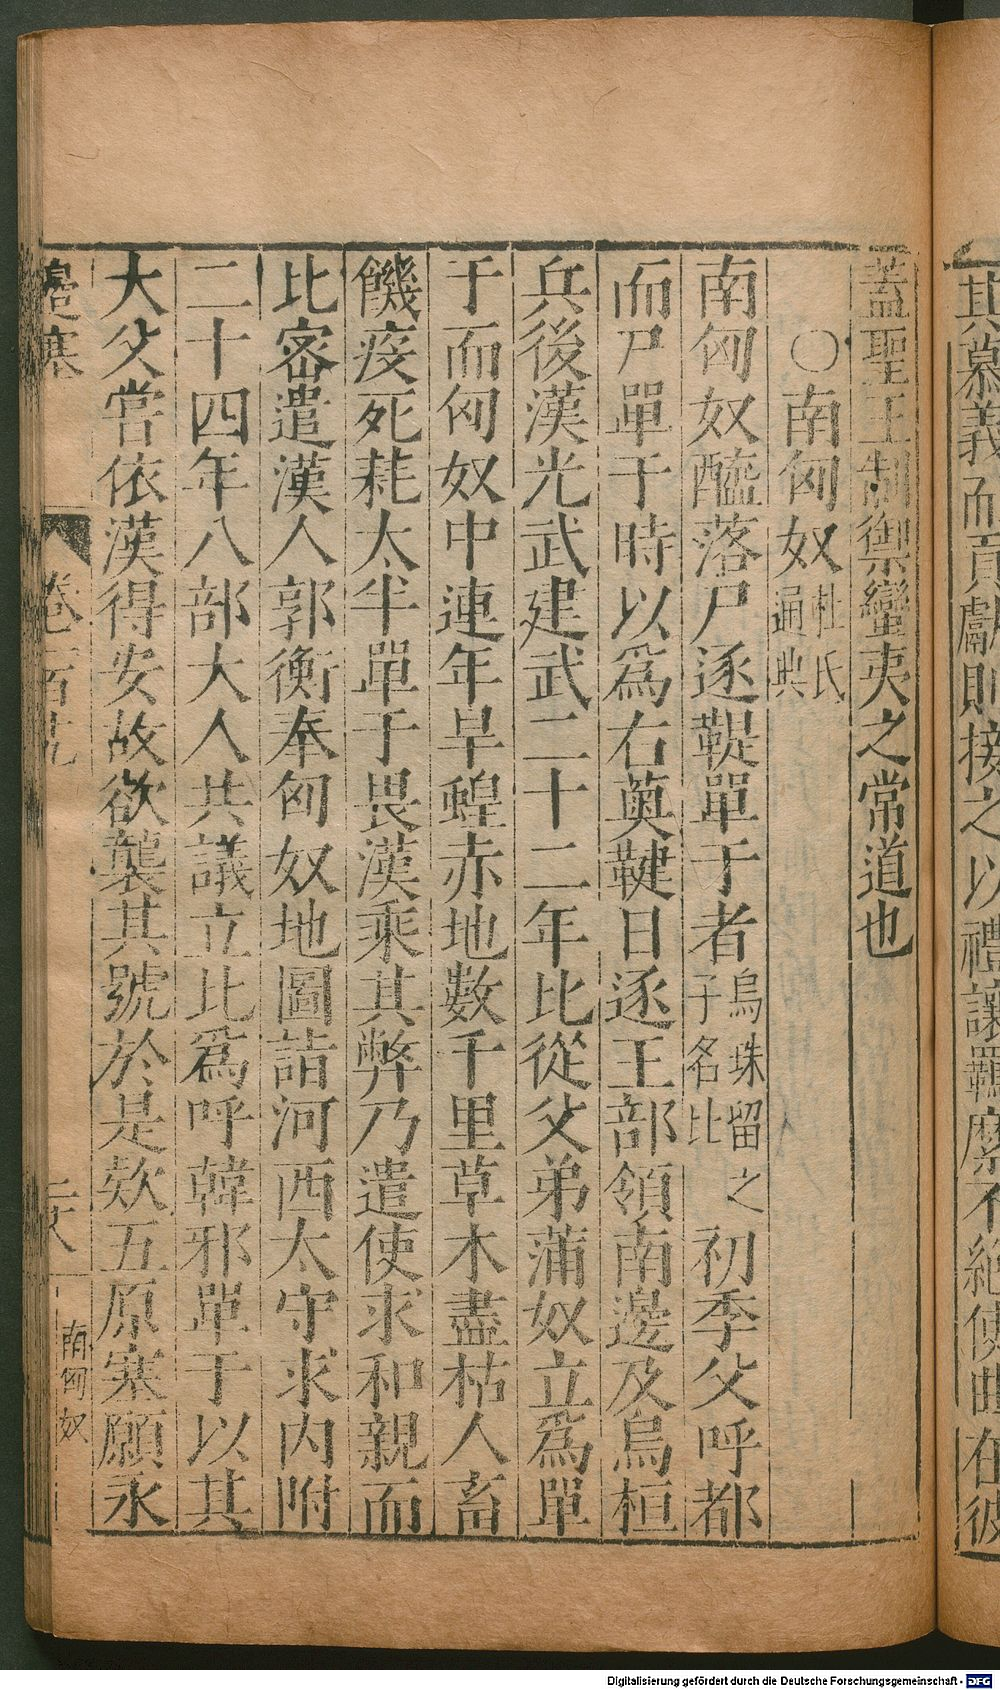 其慕義而貢獻則接之以禮讓羈縻不絕使曲在彼
蓋聖王制禦蠻夷之常道也
○南匈奴杜氏通典
南匈奴醯落尸逐鞮單于者烏珠留之子名比初季父呼都
而尸單于時以爲右薁鞬日逐王部領南邊及烏桓
兵後漢光武建武二十二年比從父弟蒲奴立爲單
于而匈奴中連年旱蝗赤地數千里草木盡枯人畜
饑疫死耗太半單于畏漢乘其弊乃遣使求和親而
比密遣漢人郭衡奉匈奴地圖詣河西太守求內附
二十四年八部大人共議立比爲呼韓邪單于以其
大父嘗依漢得安故欲襲其號於是欵五原塞願永
邊塞
卷百
南匈奴
Digitalisierung gefördert durch die Deutsche Forschungsgemeinschaft - DFG